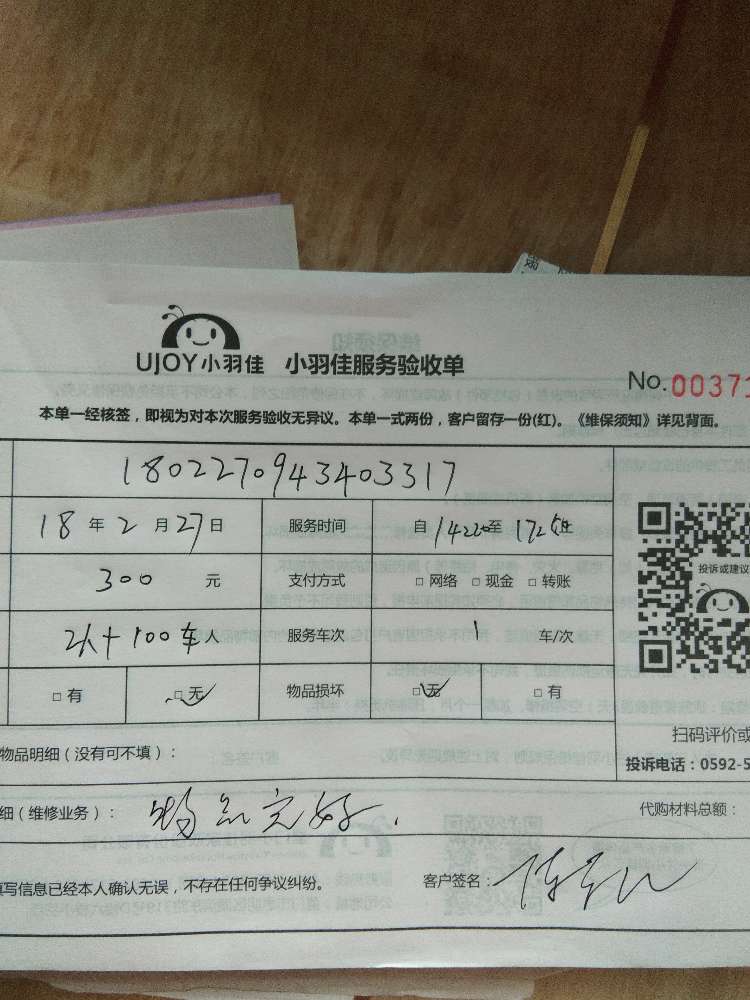 UJOY小羽佳 小羽佳服务验收单
No.00371
本单一经核签，即视为对本次服务验收无异议。本单一式两份，客户留存一份(红)。《维保须知》详见背面。
1802270943403317
18年2月27日 服务时间 自14220至
300元 支付方式 □网络 □现金 □转账
2人+100车人 服务车次 1 车/次
□有 □无 物品损坏 □无 □有
投诉或建议
扫码评价或
投诉电话：0592-5
物品明细（没有可不填）：
细（维修业务）：物品完好. 代购材料总额：
填写信息已经本人确认无误，不存在任何争议纠纷。 客户签名：